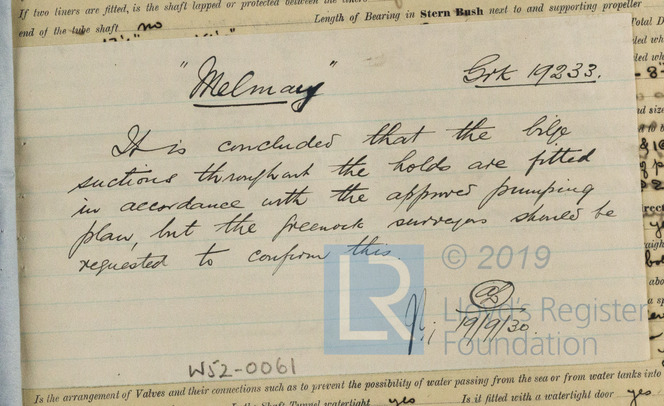 If two liners are fitted, is the shaft lapped or protected between the liners
Length of Bearing in Stern Bush next to and supporting propeller
end of the tube shaft no
"Melmay" Grk 19233.
It is concluded that the bilge
suctions throughout the holds are fitted
in accordance with the approved pumping
plan, but the Greenock surveyors should be
requested to confirm this.
© 2019
LR
Lloyd's Register
Foundation
19/9/30.
W52-0061
Is the arrangement of Valves and their connections such as to prevent the possibility of water passing from the sea or from water tanks into
Is the Shaft Tunnel watertight yes Is it fitted with a watertight door yes